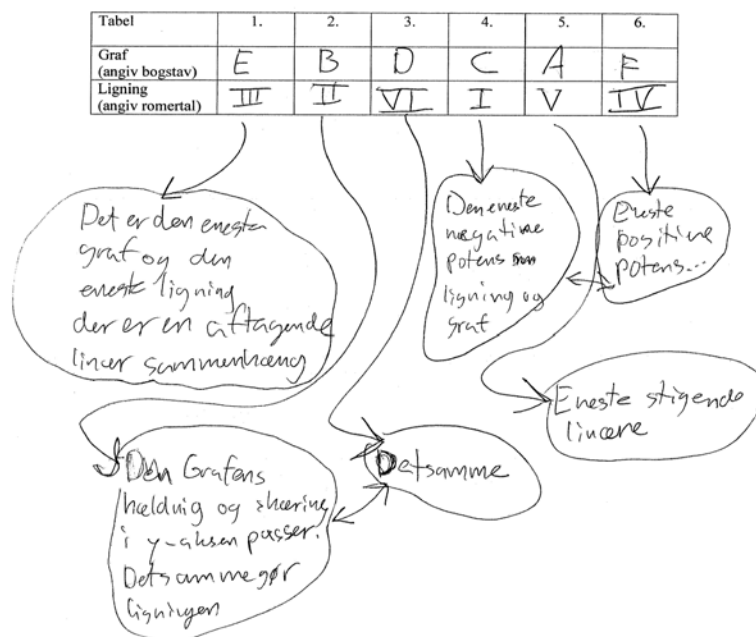 Tabel 1. 2. 3. 4. 5. 6.
Graf
(angiv bogstav) E B D C A F
Ligning
(angiv romertal) III II VI I V IV
Det er den eneste
graf og den
eneste ligning
der er en aftagende
lineær sammenhæng
Den eneste
negative
potens
ligning og
graf
Eneste
positive
potens...
Eneste stigende
lineære
Den Grafens
hældnig og skæring
i y-aksen passer.
Detsamme gør
ligningen
Detsamme